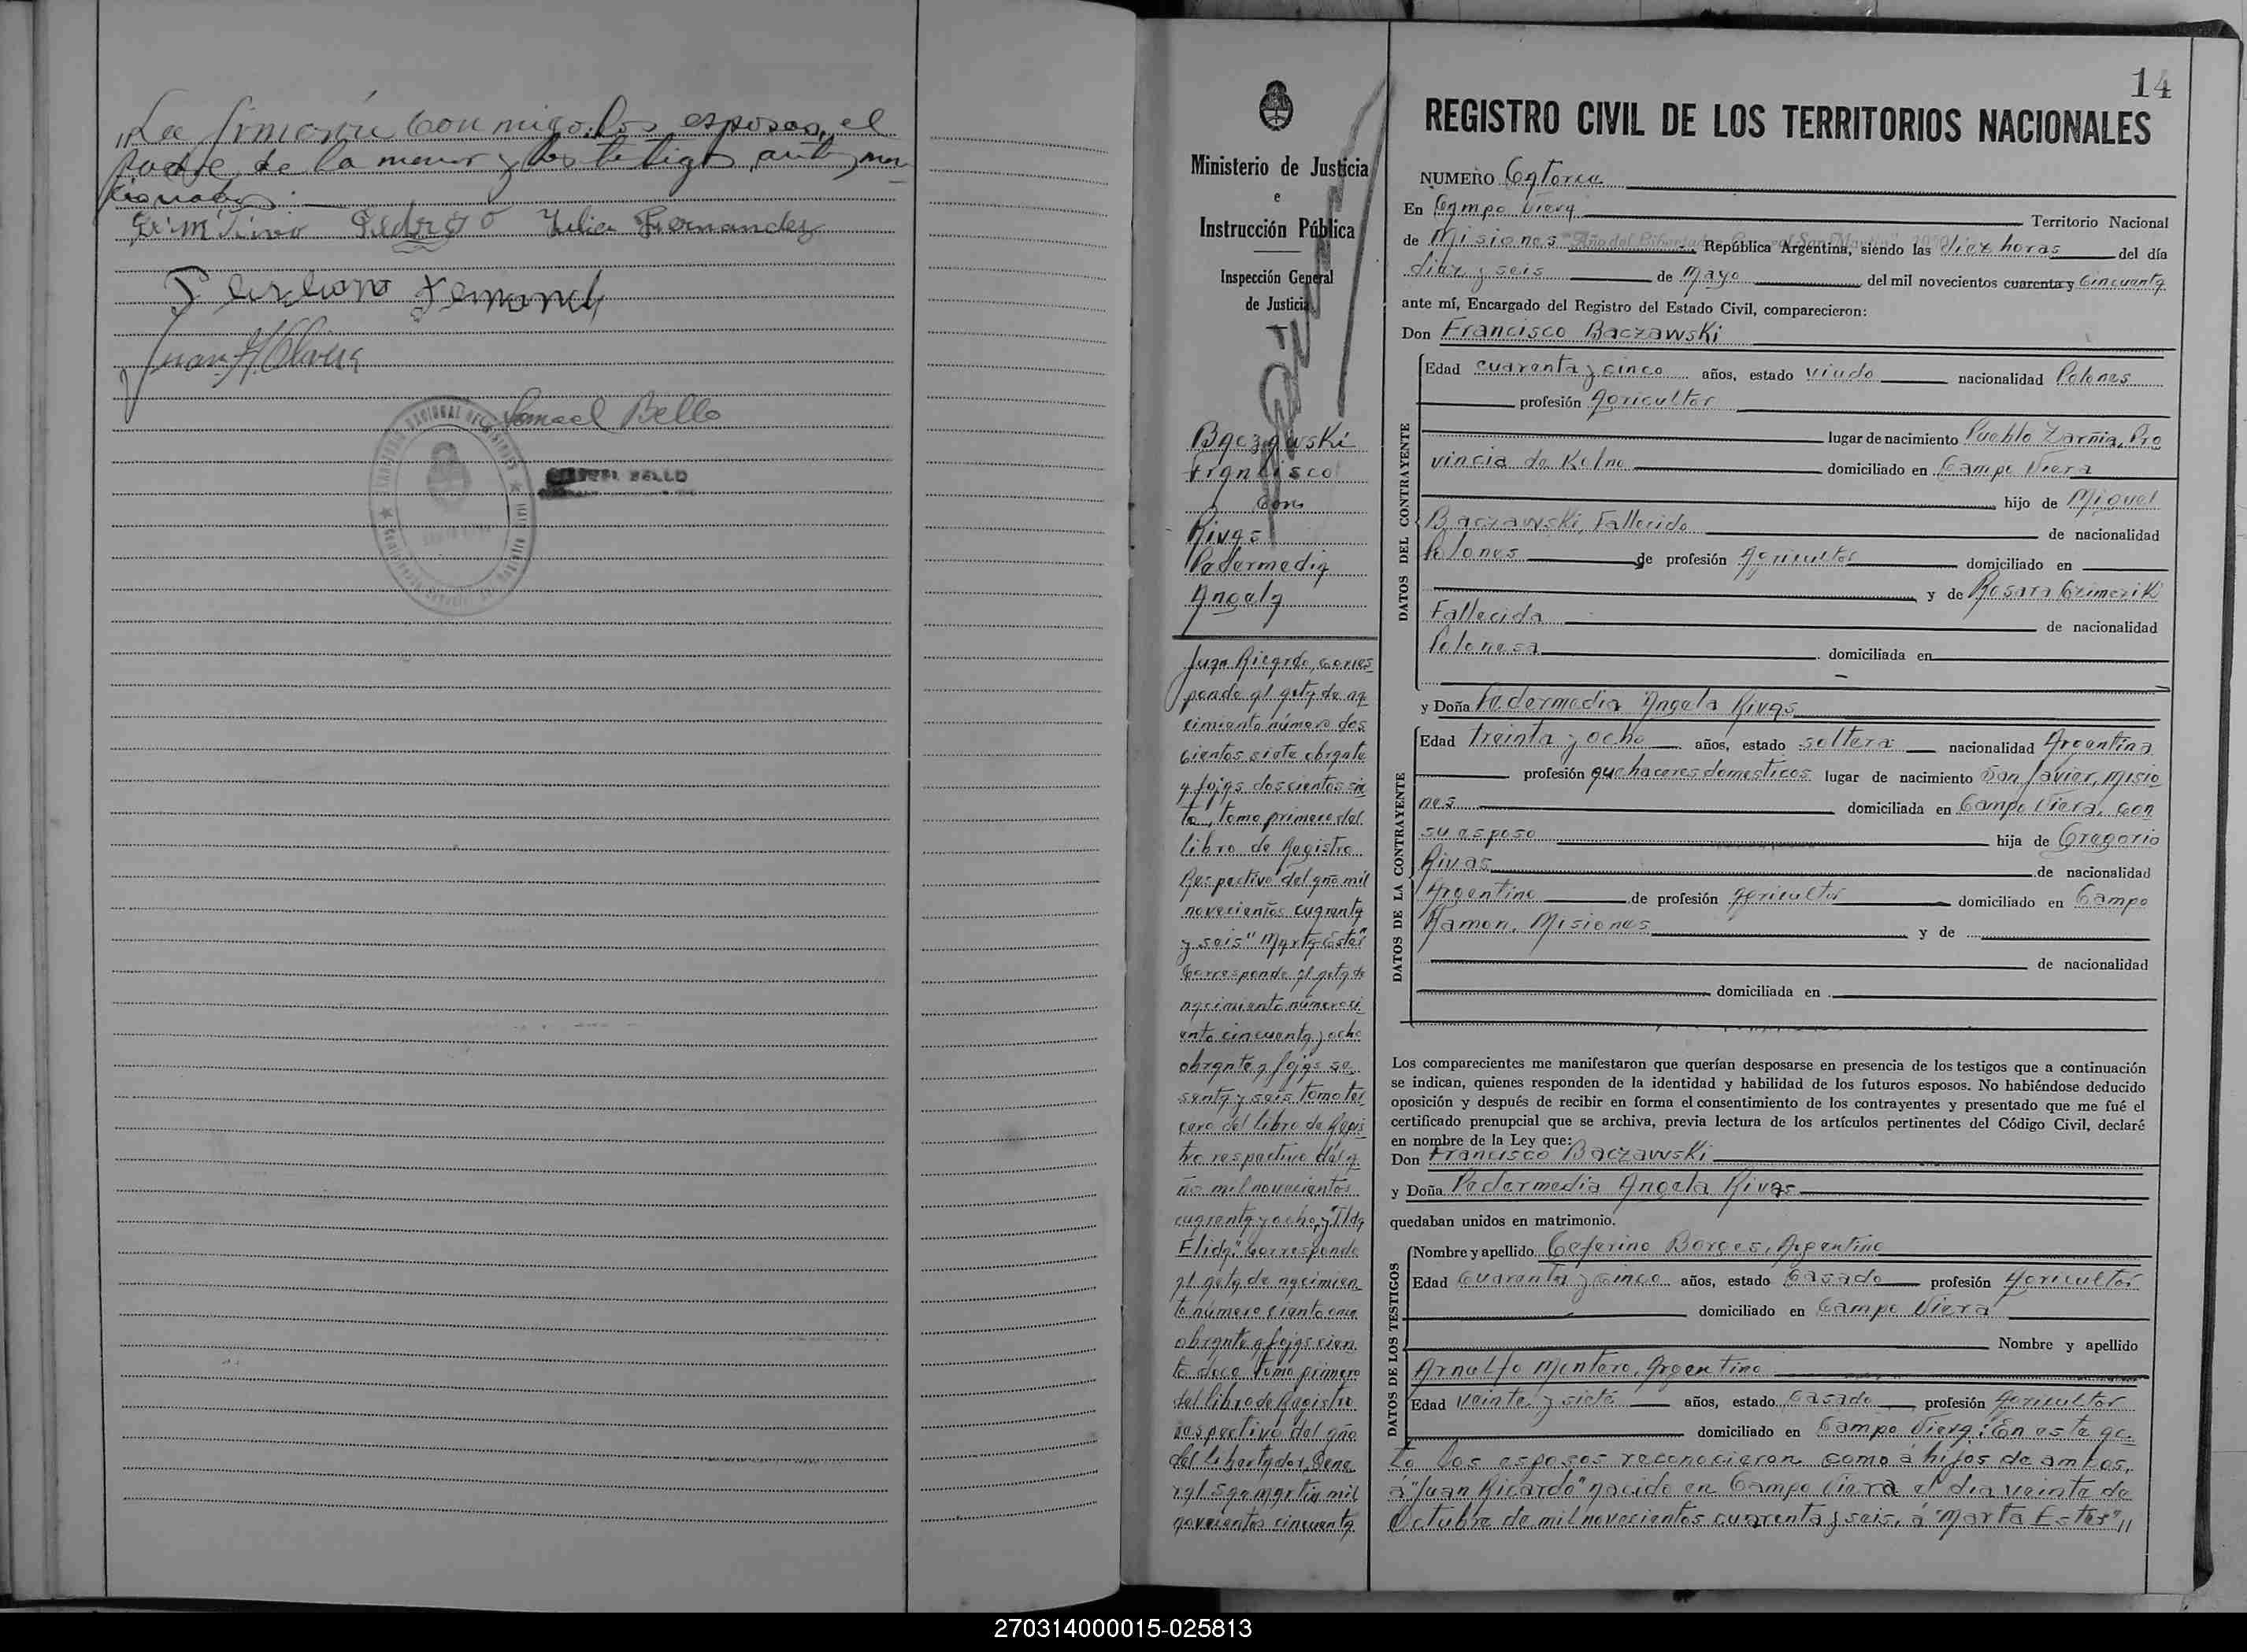 "La firmaron conmigo los esposos, el
padre de la menor y los testigos antes men
cionados.
Primitivo Pedrozo Julia Fernandez
Fernandez
Juan A. Olivera
Ismael Bello
ISMAEL BELLO
14
Ministerio de Justicia
e
Instrucción Pública
Inspección General
de Justicia
Baczawski
Francisco
con
Rivas
Padermedia
Angela
Juan Ricardo, corres
ponde al acta de na
cimiento número dos
cientos siete obrante
a fojas doscientos sie
te, tomo primero del
libro de Registro
Respectivo del año mil
novecientos cuarenta
y seis" Marta Ester"
Corresponde al acta de
nacimiento número ci
ento cincuenta y ocho
obrante a fojas se
senta y seis tomo ter
cero del libro de Regis
tro respectivo del a
ño mil novecientos
cuarenta y ocho, y "Ilda
Elida" Corresponde
al acta de nacimien
to número ciento once
obrante a fojas cien
to doce tomo primero
del libro de Registro
respectivo del año
del Libertador Gene
ral San Martin mil
novecientos cincuenta
REGISTRO CIVIL DE LOS TERRITORIOS NACIONALES
NUMERO Catorce
En Campo Viera Territorio Nacional
de Misiones "Año del Libertador General San Martín" 1950 República Argentina, siendo las diez horas del día
diez y seis de Mayo del mil novecientos cuarenta y Cincuenta
ante mí, Encargado del Registro del Estado Civil, comparecieron:
Don Francisco Baczawski
DATOS DEL CONTRAYENTE
Edad cuarenta y cinco años, estado viudo nacionalidad Polones
profesión Agricultor
lugar de nacimiento Pueblo Zarnia, Pro
vincia de Kolno domiciliado en Campo Viera
hijo de Miguel
Baczawski, Fallecido de nacionalidad
Polones de profesión Agricultor domiciliado en
y de Rosara Czimeziki
Fallecida de nacionalidad
Polonesa domiciliada en
y Doña Padermedia Angela Rivas
DATOS DE LA CONTRAYENTE
Edad treinta y ocho años, estado soltera nacionalidad Argentina
profesión quehaceres domesticos lugar de nacimiento San Javier, Misio
nes domiciliada en Campo Viera, con
su esposo hija de Gregorio
Rivas de nacionalidad
Argentino de profesión Agricultor domiciliado en Campo
Ramon, Misiones y de
de nacionalidad
domiciliada en
Los comparecientes me manifestaron que querían desposarse en presencia de los testigos que a continuación
se indican, quienes responden de la identidad y habilidad de los futuros esposos. No habiéndose deducido
oposición y después de recibir en forma el consentimiento de los contrayentes y presentado que me fué el
certificado prenupcial que se archiva, previa lectura de los artículos pertinentes del Código Civil, declaré
en nombre de la Ley que:
Don Francisco Baczawski
y Doña Padermedia Angela Rivas
quedaban unidos en matrimonio.
DATOS DE LOS TESTIGOS
Nombre y apellido Ceferino Borges, Argentino
Edad Cuarenta y cinco años, estado Casado profesión Agricultor
domiciliado en Campo Viera
Nombre y apellido
Arnulfo Montero, Argentino
Edad veinte y siete años, estado Casado profesión Agricultor
domiciliado en Campo Viera: En este ac
to los esposos reconocieron como á hijos de ambos,
á "Juan Ricardo" nacido en Campo Viera el dia veinte de
Octubre de mil novecientos cuarenta y seis, á "Marta Ester"
270314000015-025813